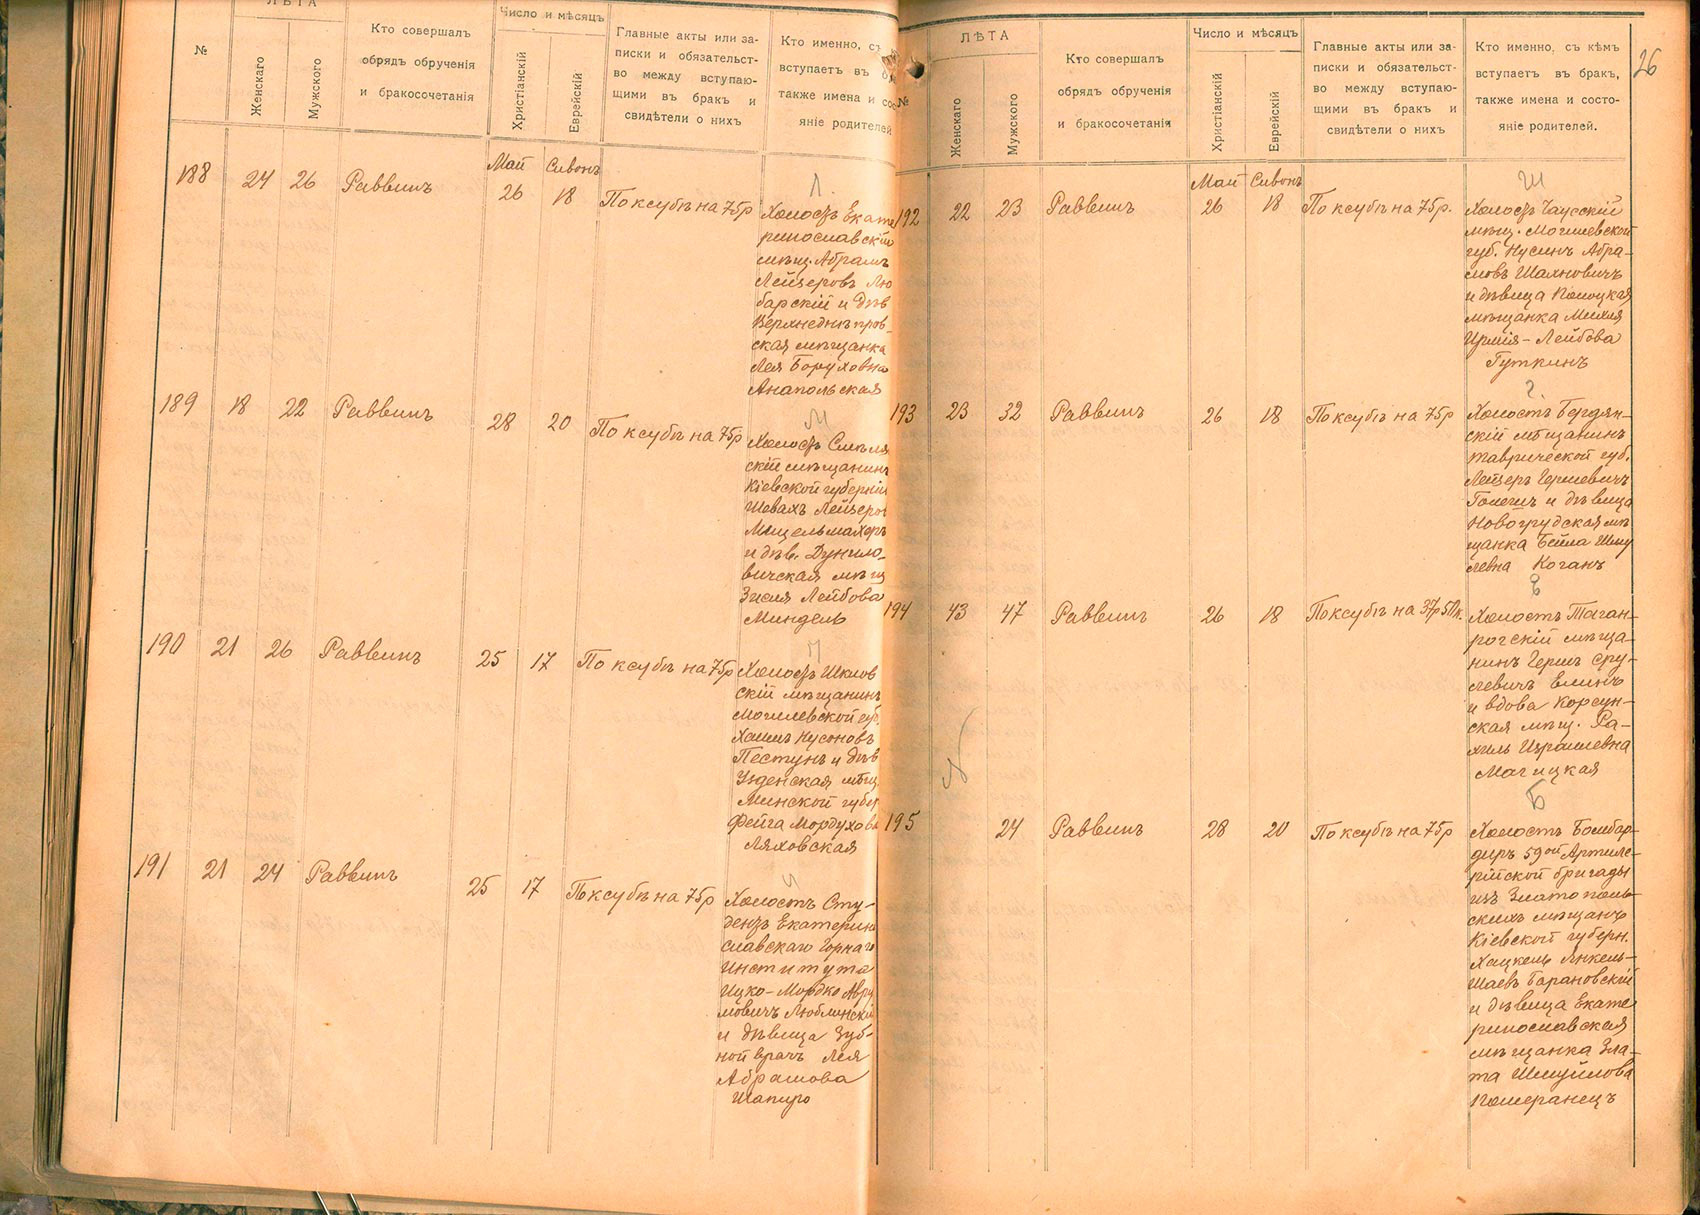 №
ЛѢТА
Женскаго
Мужского
Кто совершалъ
обрядъ обрученія
и бракосочетанія
Число и мѣсяцъ
Христіанскій
Еврейскій
Главные акты или за-
писки и обязательст-
во между вступаю-
щими въ бракъ и
свидѣтели о нихъ
Кто именно, съ
вступаетъ въ
также имена и сос
яніе родителей
188 24 26 Раввинъ
Май Сивонъ
26 18 По ксубѣ на 75р
Л.
Холостъ Екате
ринославскій
мѣщ. Абрамъ
Лейзеровъ Лю
барскій и дѣв
Верхнеднѣпров-
ская мѣщанка
Лея Боруховна
Анапольская
189 18 22 Раввинъ 28 20 По ксубѣ на 75р
М
Холостъ Смѣля
скій мѣщанинъ
Кіевской губерніи
Шевахъ Лейзеров
Мицельмахеръ
и дѣв. Дунило-
вичская мѣщ
Зисля Лейбова
Миндель
190 21 26 Раввинъ 25 17 По ксубѣ на 75р
П
Холостъ Шклов
скій мѣщанинъ
Могилевской губ.
Хаимъ Нусоновъ
Пестунъ и дѣв
Узденская мѣщ
Минской губер
Фейга Мордухова
Ляховская
191 21 24 Раввинъ 25 17 По ксубѣ на 75р
Холостъ Сту-
дентъ Екатерино
славскаго Горнаго
Института
Ицко-Мордко Авру
мовичъ Люблинскій
и дѣвица Зуб-
ной врачъ Лея
Абрамова
Шапиро
26
№
ЛѢТА
Женскаго
Мужского
Кто совершалъ
обрядъ обрученія
и бракосочетанія
Число и мѣсяцъ
Христіанскій
Еврейскій
Главные акты или за-
писки и обязательст-
во между вступаю-
щими въ бракъ и
свидѣтели о нихъ
Кто именно, съ кѣмъ
вступаетъ въ бракъ,
также имена и состо-
яніе родителей.
192 22 23 Раввинъ
Май Сивонъ
26 18 По ксубѣ на 75р.
Ш
Холостъ Чаусскій
мѣщ. Могилевской
губ. Нусинъ Абра-
мовъ Шахновичъ
и дѣвица Полоцкая
мѣщанка Михля
Лейбова
Гуткинъ
193 23 32 Раввинъ 26 18 По ксубѣ на 75р
Г.
Холостъ Бердян-
скій мѣщанинъ
Таврической губ.
Лейзеръ Гершевичъ
и дѣвица
Новогрудская мѣ
щанка Бейла Шму
левна Коганъ
194 43 47 Раввинъ 26 18 По ксубѣ на 37р50к.
Е
Холостъ Таган-
рогскій мѣща-
нинъ Гершъ Сру-
левичъ Елинъ
и вдова Корсун-
ская мѣщ. Ра-
хиль Израилевна
Магицкая
195 24 Раввинъ 28 20 По ксубѣ на 75р
Б
Холостъ Бомбар-
диръ 59ой Артиле-
рійской бригады
изъ Златополь-
скихъ мѣщанъ
Кіевской губерн.
Хацкель Янкель-
Шаевъ Барановскій
и дѣвица Екате
ринославская
мѣщанка Зла-
та Шмуйлова
Померанецъ